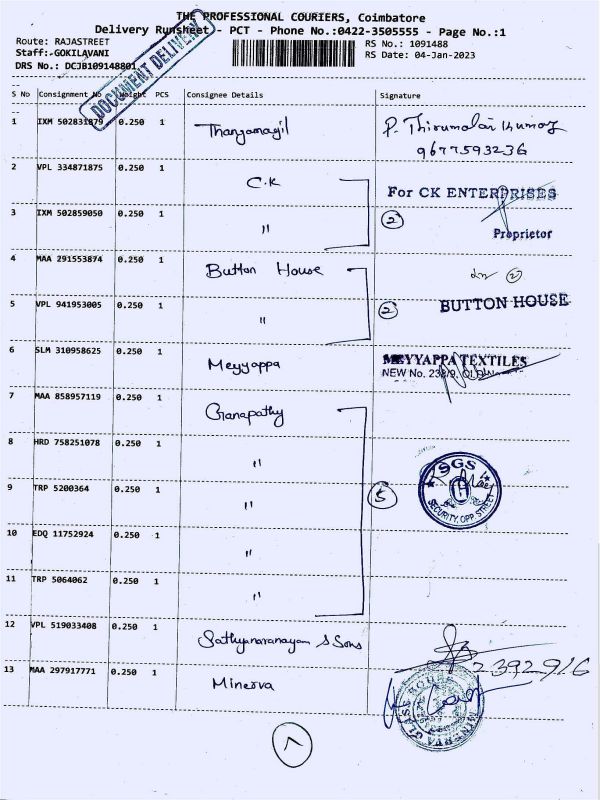 THE PROFESSIONAL COURIERS, Coimbatore
Delivery Runsheet - PCT - Phone No.:0422-3505555 - Page No.:1
Route: RAJASTREET
RS No.: 1091488
Staff:-GOKILAVANI
RS Date: 04-Jan-2023
DRS No.: DCJB109148801
DOCUMENT DELIVERY
S No Consignment No Weight PCS Consignee Details Signature
1 IXM 502831879 0.250 1 Thangamayil P. Thirumalai Kumar
9677593236
2 VPL 334871875 0.250 1 C.K For CK ENTERPRISES
3 IXM 502859050 0.250 1 " 2 Proprietor
4 MAA 291553874 0.250 1 Button House 2
5 VPL 941953005 0.250 1 " 2 BUTTON HOUSE
6 SLM 310958625 0.250 1 Meyyappa MEYYAPPA TEXTILES
NEW No.
7 MAA 858957119 0.250 1 Ganapathy
8 HRD 758251078 0.250 1 "
SGS
9 TRP 5200364 0.250 1 " 5
SECURITY, OPP. STREET
10 EDQ 11752924 0.250 1 "
11 TRP 5064062 0.250 1 "
12 VPL 519033408 0.250 1 Sathyanarayan & Sons
2392916
13 MAA 297917771 0.250 1 Minerva
MINERVA GLASS HOUSE